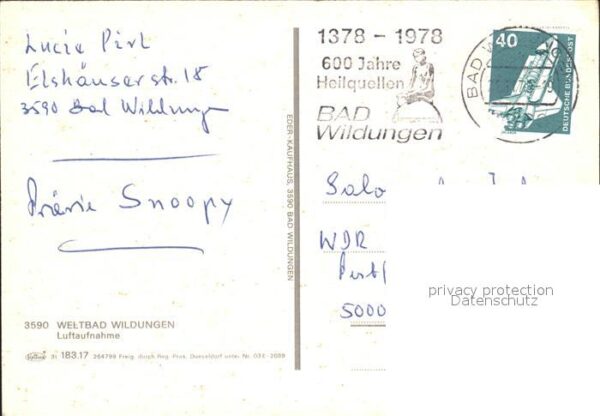 Lucie Pirl
Elshäuserstr. 18
3590 Bad Wildungen
Prärie Snoopy
3590 WELTBAD WILDUNGEN
Luftaufnahme
183.17 264799 Freig. durch Reg. Präs. Duesseldorf unter Nr.
EDER-KAUFHAUS, 3590 BAD WILDUNGEN
1378 - 1978
600 Jahre
Heilquellen
BAD
Wildungen
BAD W
40
DEUTSCHE BUNDESPOST
Salo
WDR
Postf
5000
privacy protection
Datenschutz